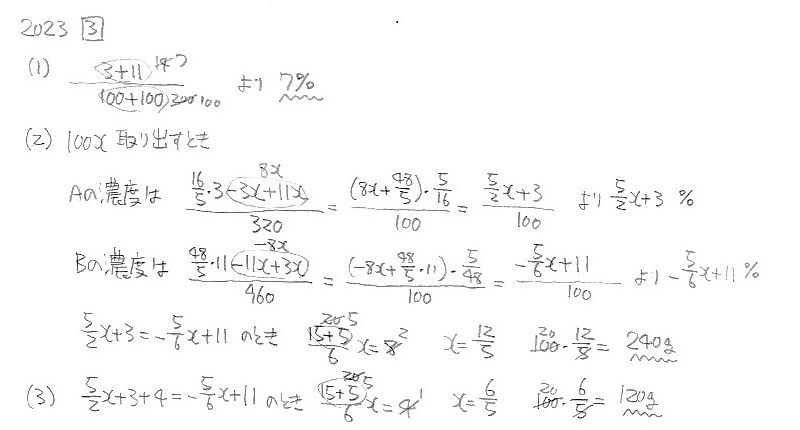 2023 3
(1) (3+11) 14 7 / (100+100) 200 100 より 7%
(2) 100x 取り出すとき
Aの濃度は (16/5・3-3x+11x 8x)/320 = (8x+48/5)・5/16/100 = (5/2x+3)/100 より 5/2x+3 %
Bの濃度は (48/5・11-11x+3x -8x)/460 = (-8x+48/5・11)・5/48/100 = (-5/6x+11)/100 より -5/6x+11 %
5/2x+3=-5/6x+11 のとき 15+5 20 5/6 x=8 2 x=12/5 20 100・12/5= 240g
(3) 5/2x+3+4=-5/6x+11 のとき 15+5 20 5/6 x=4 1 x=6/5 20 100・6/5= 120g